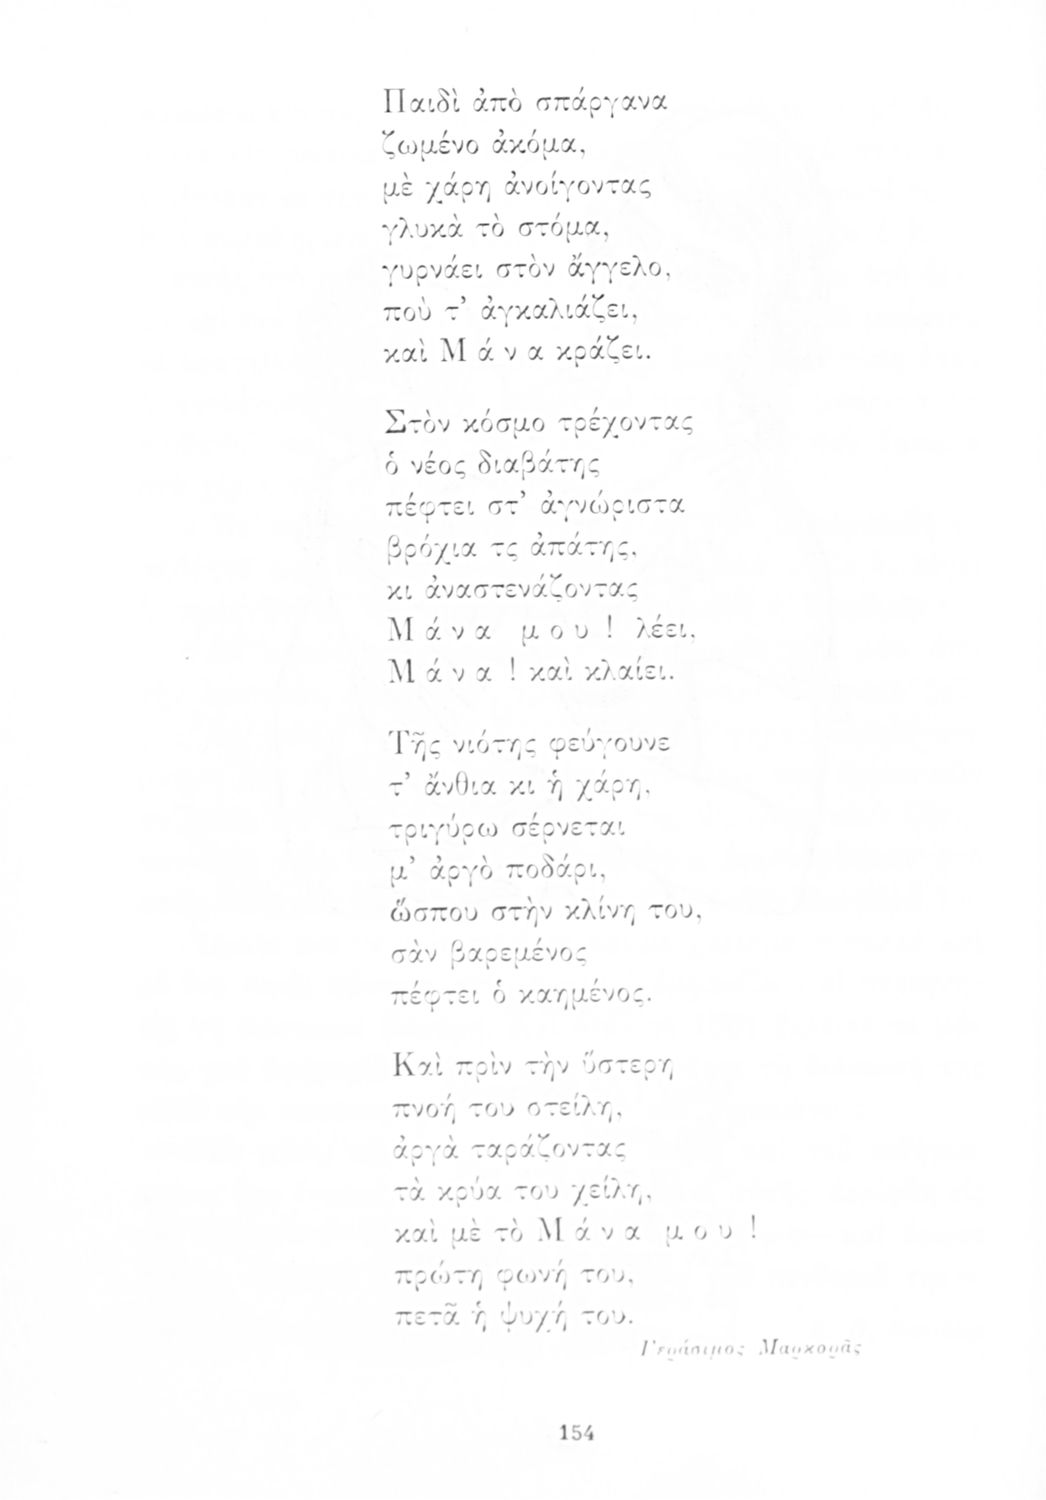 Παιδὶ ἀπὸ σπάργανα
ζωμένο ἀκόμα,
μὲ χάρη ἀνοίγοντας
γλυκὰ τὸ στόμα,
γυρνάει στὸν ἄγγελο,
ποὺ τ᾽ ἀγκαλιάζει,
καὶ Μ ά ν α κράζει.
Στὸν κόσμο τρέχοντας
ὁ νέος διαβάτης
πέφτει στ᾽ ἀγνώριστα
βρόχια τς ἀπάτης,
κι ἀναστενάζοντας
Μ ά ν α μ ο υ ! λέει,
Μ ά ν α ! καὶ κλαίει.
Τῆς νιότης φεύγουνε
τ᾽ ἄνθια κι ἡ χάρη,
τριγύρω σέρνεται
μ᾽ ἀργὸ ποδάρι,
ὥσπου στὴν κλίνη του,
σὰν βαρεμένος
πέφτει ὁ καημένος.
Καὶ πρὶν τὴν ὕστερη
πνοή του οτείλη,
ἀργὰ ταράζοντας
τὰ κρύα του χείλη,
καὶ μὲ τὸ Μ ά ν α μ ο υ !
πρώτη φωνή του,
πετᾶ ἡ ψυχή του.
Γεράσιμος Μαρκορᾶς
154